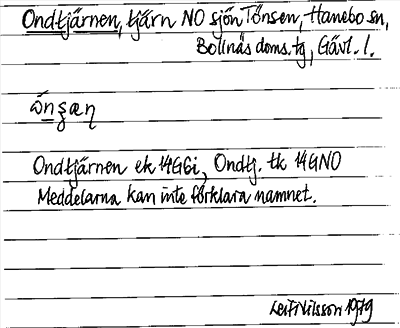 Ondtjärnen, tjärn NO sjön Tönsen, Hanebo sn,
Bollnäs doms. tg, Gävl. l.
Ondtjärnen ek 14G6i, Ondtj. tk 14GNO
Meddelarna kan inte förklara namnet.
Leif Nilsson 1979